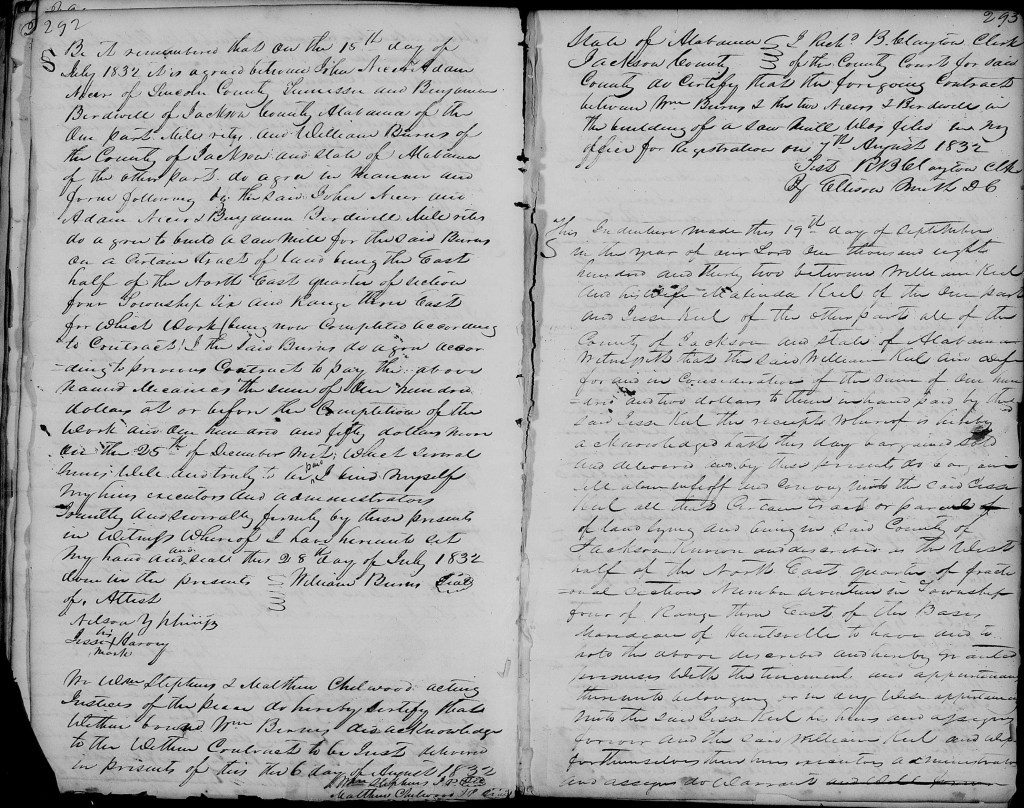 292
Be it remembered that on the 18th day of
July 1832 it is agreed between John Nicer Adam
Nicer of Lincoln County Tennessee and Benjamin
Birdwell of Jackson County Alabama of the
One part Mill rites and William Burns of
the County of Jackson and state of Alabama
of the other part do agree in manner and
form following by the said John Nicer and
Adam Nicer & Benjamin Birdwell Mill rites
do agree to build a saw Mill for the said Burns
on a Certain tract of land being the East
half of the North East quarter of section
four Township Six and Range three East
for Which Work (being now Completed according
to Contract) I the said Burns do agree accor
-ding to previous Contract to pay the above
named Mecanics the sum of One hundred
dollars at or before the Completion of the
Work and One hundred and fifty dollars more
on the 25th of December next, Which several
sums Well and truly to be paid I bind myself
My heirs executors and administrators
Jointly and severally firmly by these presents
in Witness Whereof I have hereunto set
My hand and seal this 28th day of July 1832
done in the presents William Burns Seal
of, Attest
Nelson
his
Jesse Harvey
mark
We Wm Stephens & Matthew Chelwood acting
Justices of the peace do hereby certify that
Within Wm Burns did acknowledge
to the Within Contract to be Just delivered
in presents of this the 6 day of August 1832
Wm Stephens J P Seal
Matthew Chelwood J P Seal
293
State of Alabama I Richd B. Clayton Clerk
Jackson County of the County Court for said
County do Certify that the foregoing Contract
between Wm Burns & the two Nicers & Birdwell in
the building of a saw mill Was filed in my
office for Registration on 7th August 1832
Test R B Clayton Clk
By Ellison Smith D C
This Indenture made this 19th day of September
in the year of our Lord One thousand eight
hundred and thirty two between William Keel
and his Wife Malinda Keel of the One part
and Jesse Keel of the other part all of the
County of Jackson and state of Alabama
Witnesseth that the said William Keel and Wife
for and in Consideration of the sum of One hun
-dred and two dollars to them in hand paid by the
said Jesse Keel the receipt whereof is hereby
acknowledged hath this day bargained sold
and delivered and by these presents do bargain
sell alien enfeoff and convey unto the said Jesse
Keel all that Certain tract or parcel of
of land lying and being in said County of
Jackson Known and described as the West
half of the North East quarter of fracti
-onal section Number in Township
four of Range three East of the Basis
Meridian of Huntsville to have and to
hold the above described and hereby granted
premises With the tenement and appurtenan
thereunto belonging or in any Wise appertaining
unto the said Jesse Keel his heirs and assigns
forever and the said William Keel and Wife
for themselves their heirs executors administrators
and assigns do Warrant and